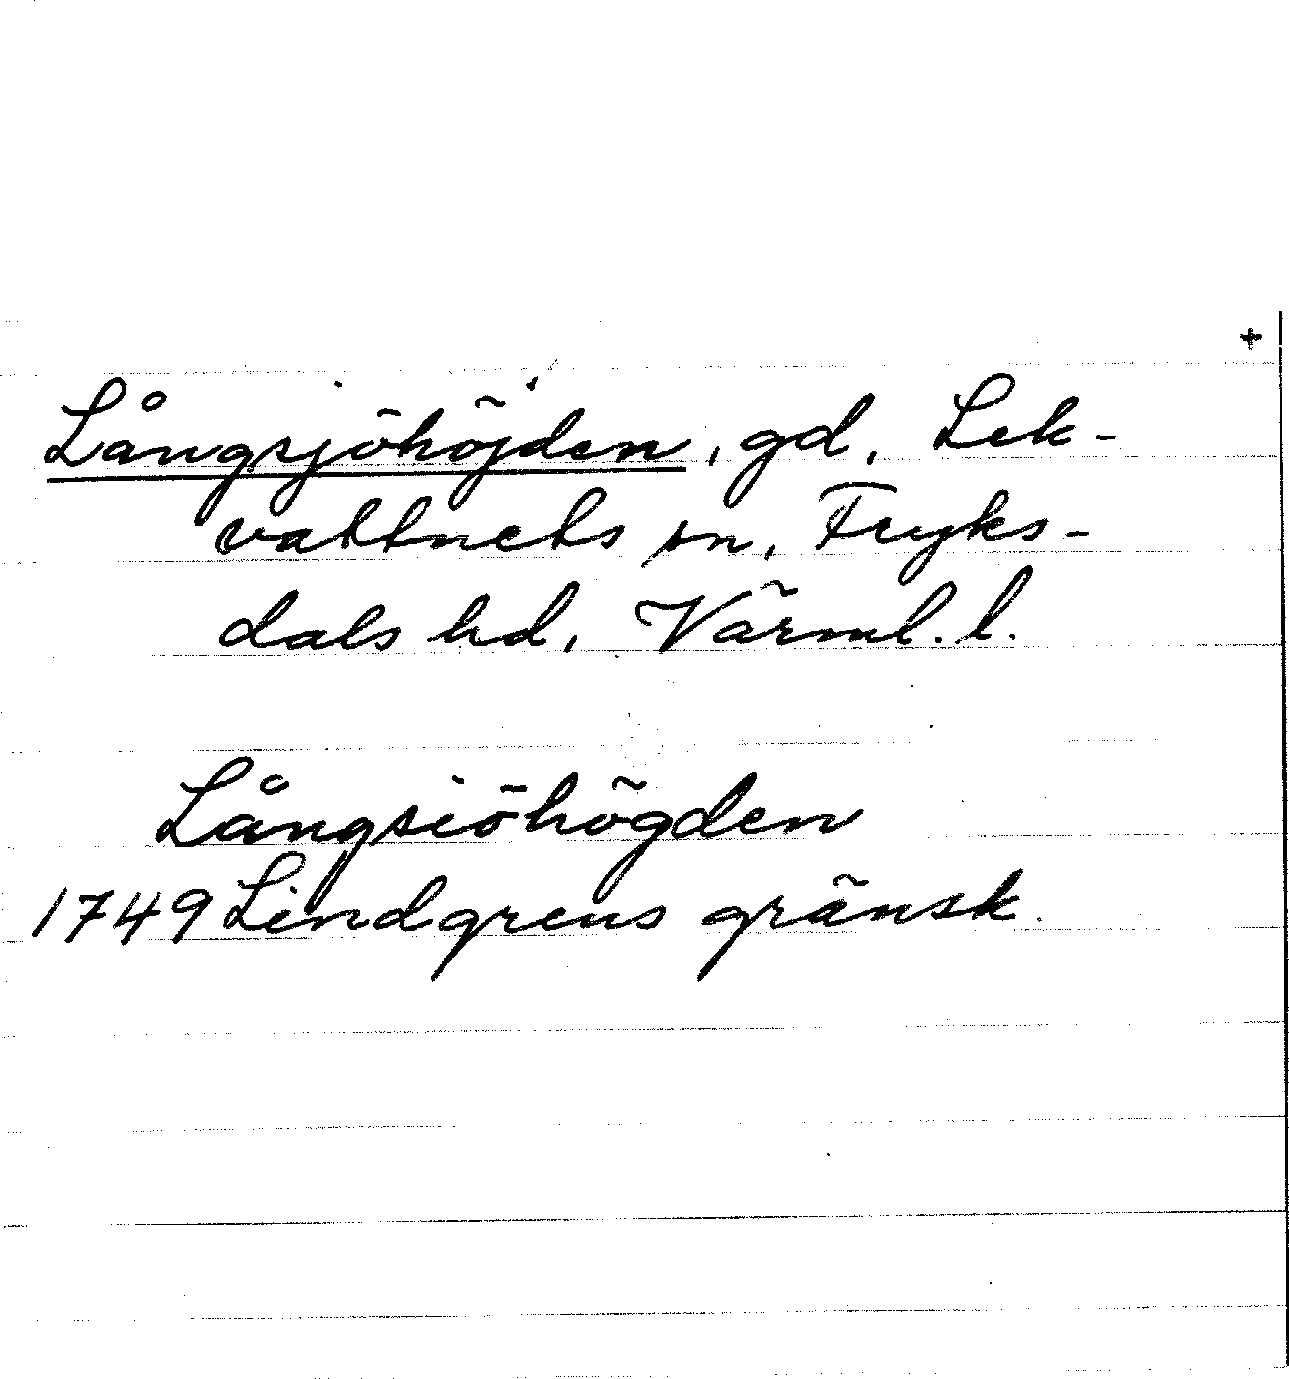 +
Långsjöhöjden, gd, Lek-
vattnets sn, Fryks-
dals hd, Värml. l.
Långsiöhögden
1749 Lindgrens gränsk.